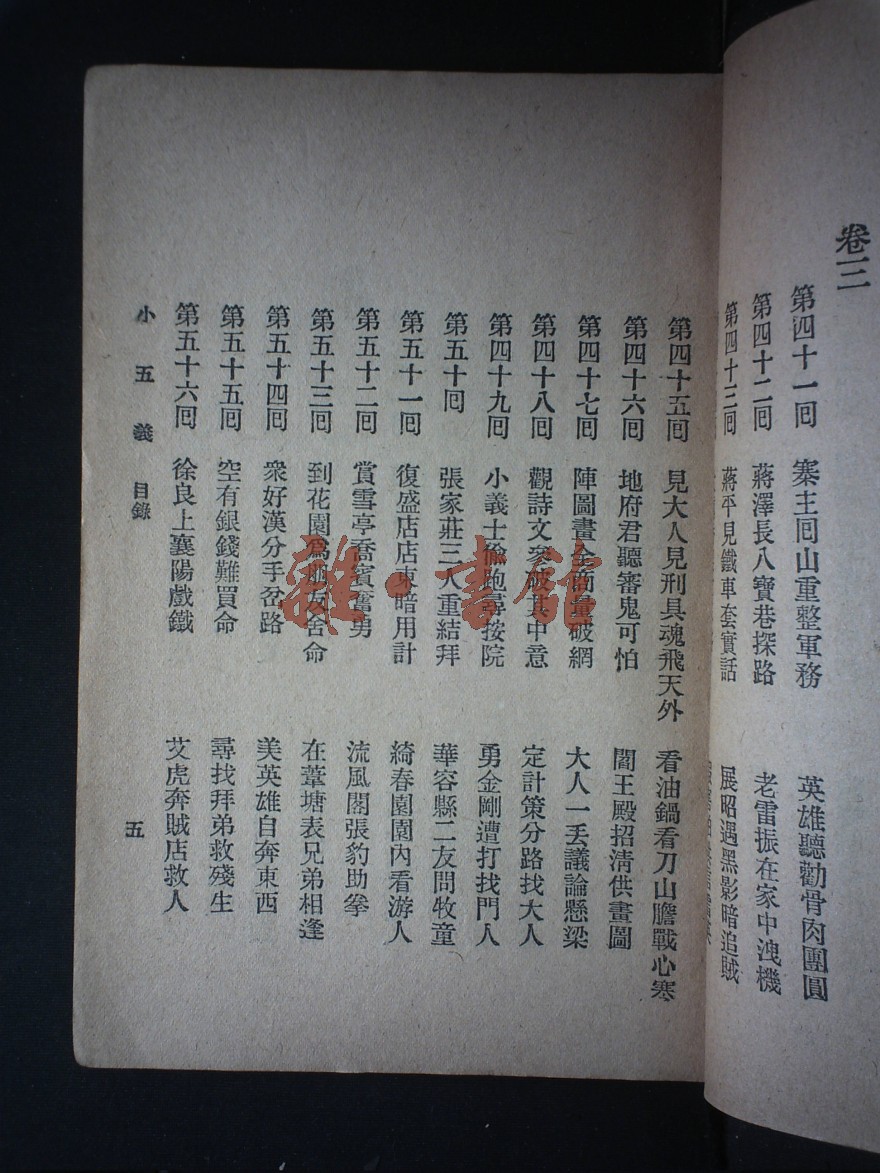 卷三
第四十一囘 寨主囘山重整軍務 英雄聽勸骨肉團圓
第四十二囘 蔣澤長八寶巷探路 老雷振在家中洩機
第四十三囘 蔣平見鐵車套實話 展昭遇黑影暗追賊
第四十五囘 見大人見刑具魂飛天外 看油鍋看刀山膽戰心寒
第四十六囘 地府君聽審鬼可怕 閻王殿招清供畫圖
第四十七囘 陣圖畫全商量破網 大人一丢議論懸梁
第四十八囘 觀詩文參破其中意 定計策分路找大人
第四十九囘 小義士偸跑尋按院 勇金剛遭打找門人
第五十囘 張家莊三人重結拜 華容縣二友問牧童
第五十一囘 復盛店店東暗用計 綺春園園內看游人
第五十二囘 賞雪亭喬賓奮勇 流風閣張豹助拳
第五十三囘 到花園爲朋友舍命 在葦塘表兄弟相逢
第五十四囘 衆好漢分手岔路 美英雄自奔東西
第五十五囘 空有銀錢難買命 尋找拜弟救殘生
第五十六囘 徐良上襄陽戲鐵 艾虎奔賊店救人
小五義 目錄 五
雜·書館